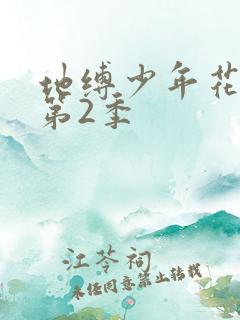 地缚少年花
第2季
江苓祠
未经同意禁止转载